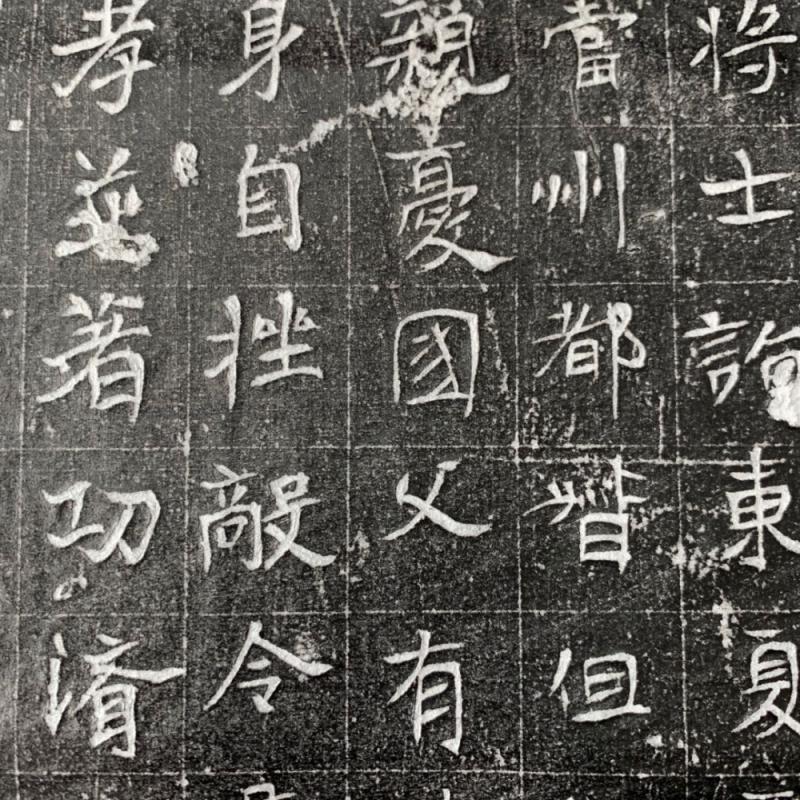 将士東夏
當州都督但
親憂國父有
身自挫敵令
孝並著功濟